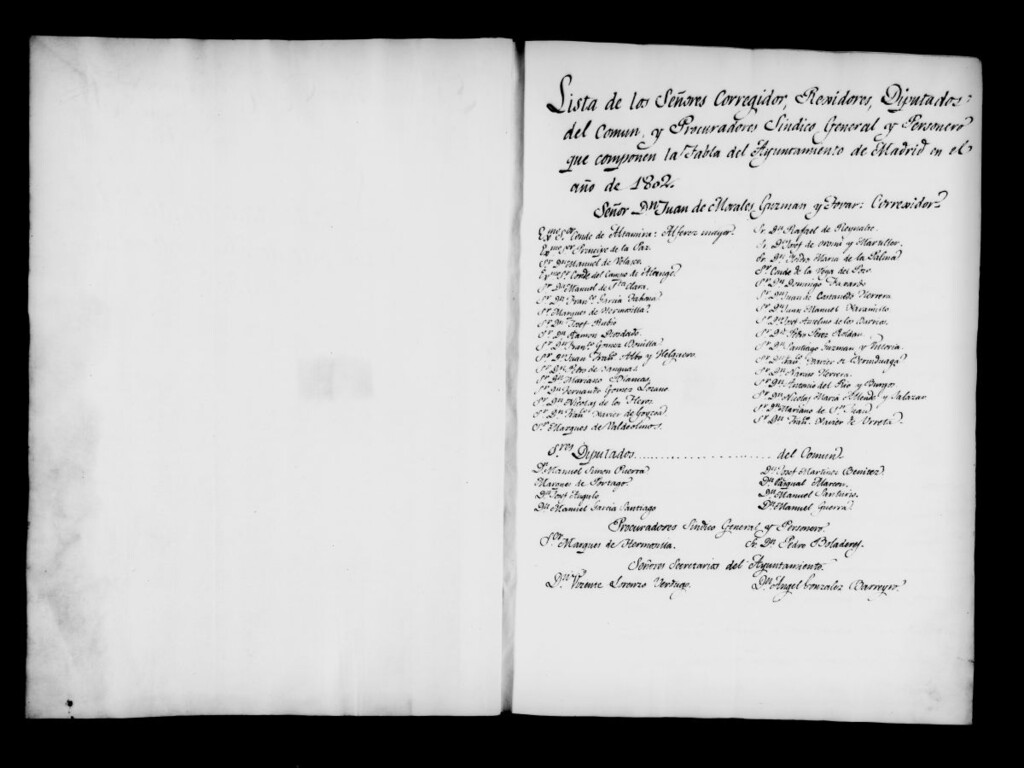 Lista de los Señores Corregidor, Rexidores, Diputados
del Comun, y Procuradores Sindico General y Personero
que componen la Tabla del Ayuntamiento de Madrid en el
año de 1802.
Señor Dn Juan de Morales Guzman y Tovar: Correxidor
Exmo Sor Conde de Altamira: Alferez mayor.
Exmo Sor Principe de la Paz.
Sr Dn Manuel de Velasco.
Exmo Sr Conde del Campo de Alange
Sr Dn Manuel de Sta Clara.
Sr Dn Franco Garcia
Sr Marques de Hermosilla
Sr Dn Josef Rubio
Sr Dn Ramon
Sr Dn Franco Gomez Bonilla
Sr Dn Juan Franco Albo y Helguero
Sr Dn Pedro de
Sr Dn Mariano
Sr Dn Fernando Gomez Lozano
Sr Dn Nicolas de los Heros
Sr Dn Franco Xavier de
Sr Marques de Valdeolmos.
Sr Dn Rafael de Reynalte
Sr Dn Josef de y
Sr Dn Pedro Maria de la
Sr Conde de la Vega del Pozo
Sr Dn Domingo
Sr Dn Juan de Castanedo Herrera
Sr Dn Juan Manuel Xaramillo
Sr Dn Josef Antelmo de los Barrios
Sr Dn Pedro Perez Roldan
Sr Dn Santiago Guzman y Villoria
Sr Dn Franco Xavier de
Sr Dn Herrera
Sr Dn Antonio del Rio y Burgos
Sr Dn Nicolas Maria y Salazar
Sr Dn Mariano de Sn Juan
Sr Dn Franco Xavier de Urreta
Sres Diputados ........................ del Comun
Dn Manuel Simon Guerra
Marques de Portago
Dn Josef Angulo
Dn Manuel Garcia Santiago
Dn Josef Martinez Benitez
Dn Pasqual
Dn Manuel
Dn Manuel Guerra
Procuradores Sindico General y Personero
Sor Marques de Hermosilla.
Sr Dn Pedro
Señores Secretarios del Ayuntamiento
Dn Vizente Lorenzo Verdugo
Dn Angel Gonzalez Barreyro